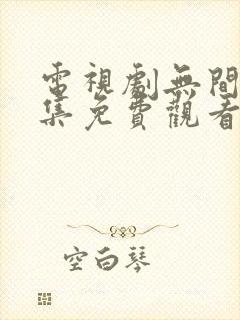 電視劇無間
集免費觀看
空白琴